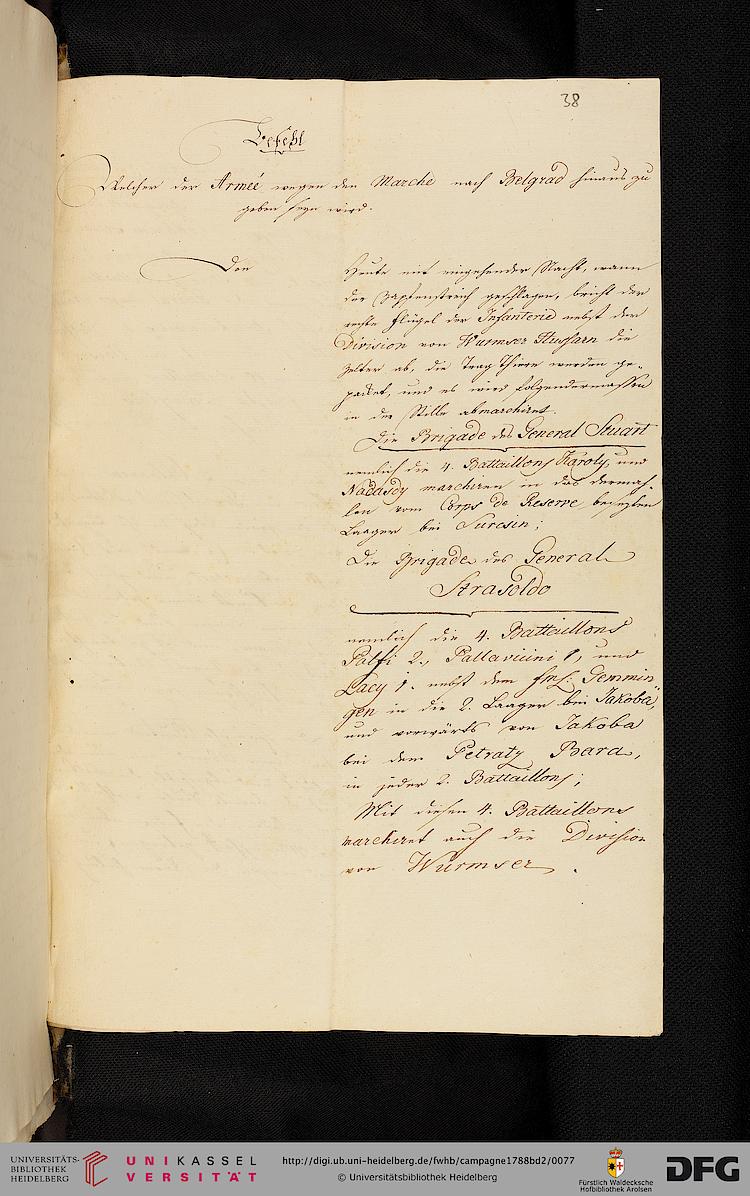 38
Befehl
Welcher der Armeé wegen den Marche nach Belgrad hinaus zu
geben seyn wird.
Den
Heute mit eingehender Nacht, wann
der Zapfenstreich geschlagen, bricht der
rechte Flügel der Infanterie nebst der
Division von Wurmser Hussarn die
Zelter ab, die Trag Thiere werden ge-
packet, und es wird folgendermassen
in der Stille abmarchiret.
Die Brigade des General Stuart
nemlich die 4. Battaillons Karoly, und
Nadasdy marchiren in das dermah-
len vom Corps de Reserve besezten
Laager bei Surcsin;
Die Brigade des General
Strasoldo
nemlich die 4. Battaillons
Palfi 2., Pallavicini 1, und
Lacy 1. nebst dem fml: Gemmin
gen in die 2. Laager bei Jakoba,
und vorwärts von Jakoba
bei dem Petraty Bara,
in jeder 2. Battaillons;
Mit diesen 4. Battaillons
marchiret auch die Division
von Wurmser.
UNIVERSITÄTS-
BIBLIOTHEK
HEIDELBERG
UNIKASSEL
VERSITÄT
http://digi.ub.uni-heidelberg.de/fwhb/campagne1788bd2/0077
© Universitätsbibliothek Heidelberg
Fürstlich Waldecksche
Hofbibliothek Arolsen
DFG